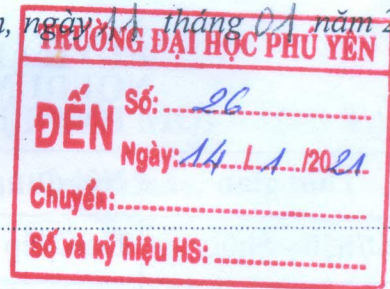 n, ngày 11 tháng 01 năm 2
TRƯỜNG ĐẠI HỌC PHÚ YÊN
ĐẾN
Số: 26
Ngày: 14 / 1 /2021
Chuyển:
Số và ký hiệu HS: